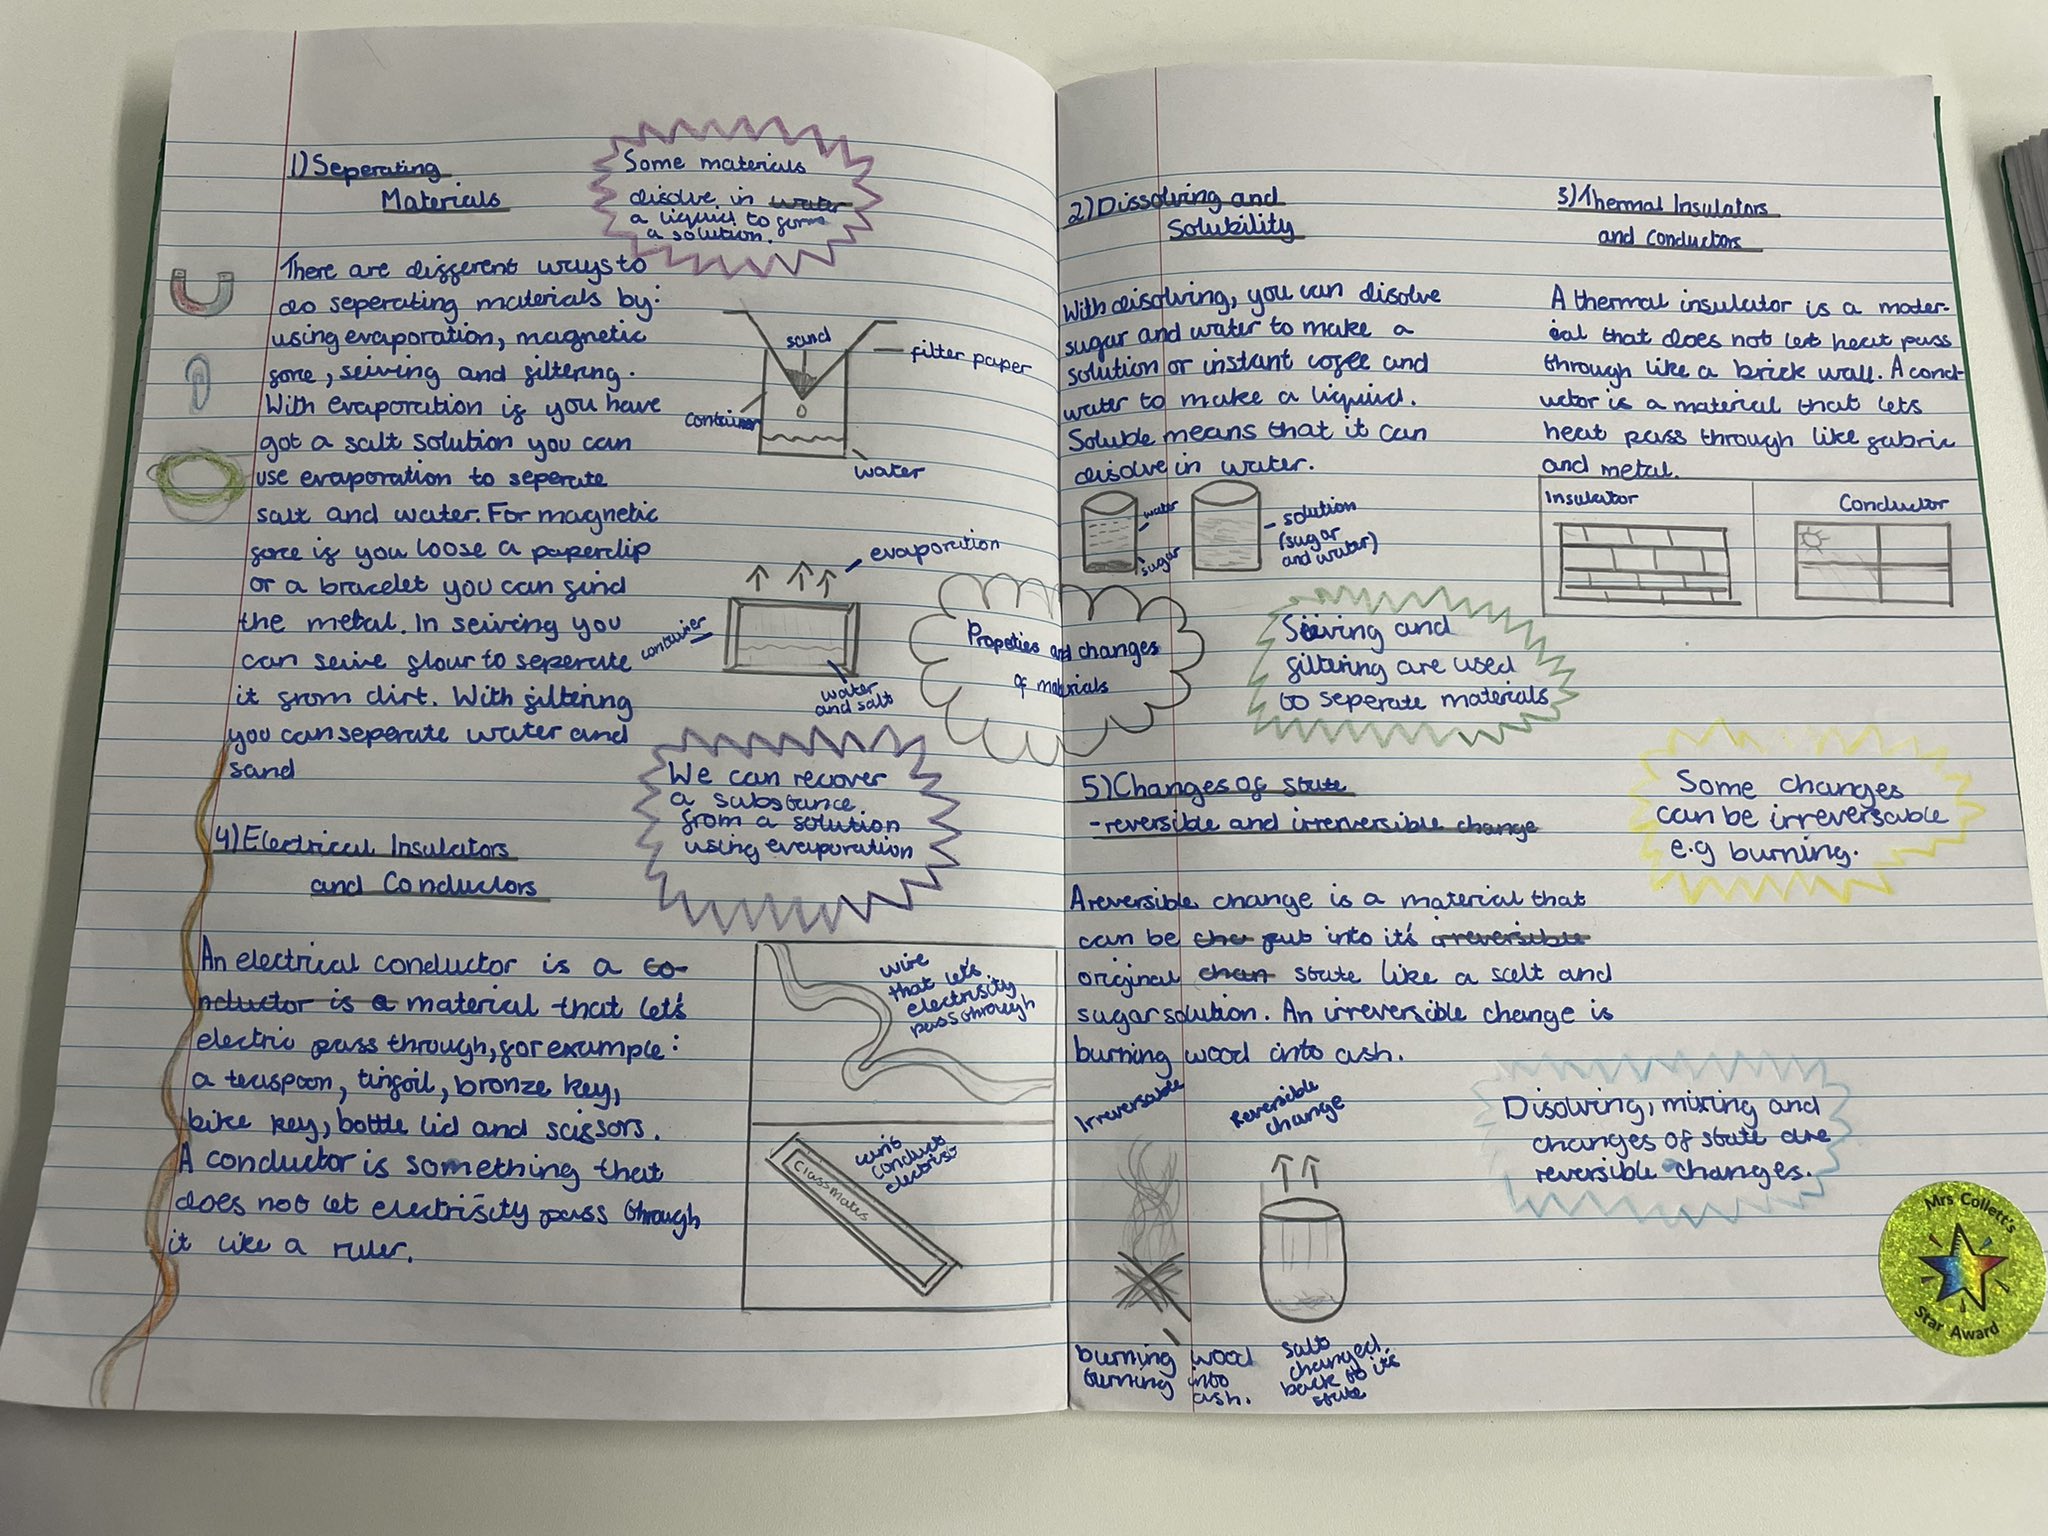 1) Seperating
Materials
Some materials
disolve in water
a liquid to form
a solution.
There are different ways to
do seperating materials by:
using evaporation, magnetic
force, seiving and filtering.
With evaporation if you have
got a salt solution you can
use evaporation to seperate
salt and water. For magnetic
force if you loose a paperclip
or a bracelet you can find
the metal. In seiving you
can seive flour to seperate
it from dirt. With filtering
you can seperate water and
sand
sand
filter paper
container
water
evaporation
container
water
and salt
We can recover
a substance
from a solution
using evaporation
4) Electrical Insulators
and Conductors
An electrical conductor is a co-
nductor is a material that let's
electric pass through, for example:
a teaspoon, tinfoil, bronze key,
bike key, bottle lid and scissors.
A conductor is something that
does not let electrisity pass through
it like a ruler.
wire
that let's
electrisity
pass through
Classmates
Propeties and changes
of materials
2) Dissolving and
Solubility
With disolving, you can disolve
sugar and water to make a
solution or instant cofee and
water to make a liquid.
Soluble means that it can
disolve in water.
water
sugar
solution
(sugar
and water)
3) Thermal Insulators
and Conductors
A thermal insulator is a mater-
ial that does not let heat pass
through like a brick wall. A cond-
uctor is a material that lets
heat pass through like fabric
and metal.
Insulator
Conductor
Seiving and
filtering are used
to seperate materials
5) Changes of state
-reversible and irrerversible change
Some changes
can be irreversable
e.g burning.
A reversible change is a material that
can be cha put into it's irreversible
original chan state like a salt and
sugar solution. An irreversible change is
burning wood into ash.
Irreversable
Reversible
change
burning wood
turning into
ash.
Salt
changed
back to it's
state
Disolving, mixing and
changes of state are
reversible changes.
Mrs Collett's
Star Award